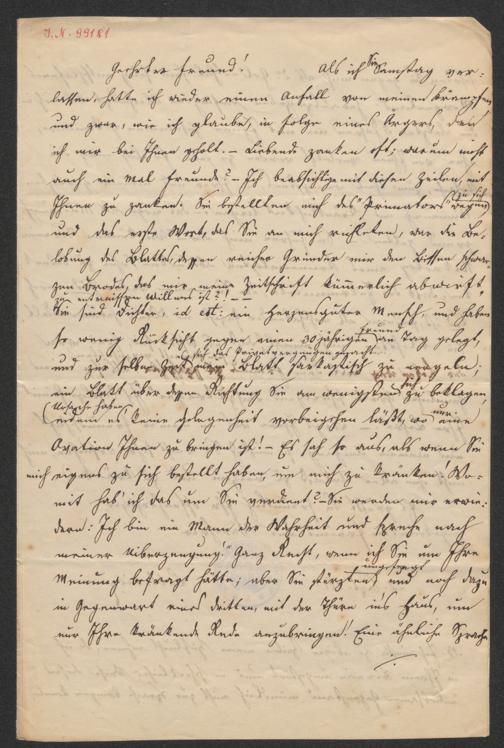 J. N. 99181
Geehrter Freund! Als ich Sie Samstag ver-
lassen, hatte ich wieder einen Anfall von meinen Krämpfen
und zwar, wie ich glaube, in Folge eines Ärgers, den
ich mir bei Ihnen geholt. – Liebende zanken oft; warum nicht
auch ein Mal Freunde? – Ich beabsichtige mit diesen Zeilen, mit
Ihnen zu zanken. Sie bestellten mich des "Primators" wegen zu sich
und das erste Wort, das Sie an mich richteten, war die Be-
lobung des Blattes, dessen reicher Gründer mir den Bissen schwar-
zen Brodes, das mir meine Zeitschrift kümmerlich abwirft,
zu entreissen Willens ist?! – –
Sie sind Dichter, id est: ein herzensguter Mensch, und haben
so wenig Rücksicht gegen einen 30jährigen Freund an Tag gelegt,
und zur selben Zeit, mein Blatt sarkastisch zu
sich das Privatvergnügen gemacht
ein Blatt über dessen Richtung Sie am wenigsten sich zu beklagen
Ursache haben, indem es keine Gelegenheit vorbeigehen läßt, wo nur eine
Ovation Ihnen zu bringen ist! – Es sah so aus, als wenn Sie
mich eigens zu sich bestellt haben, um mich zu kränken! Wo-
mit hab' ich das um Sie verdient? – Sie werden mir erwie-
dern: "Ich bin ein Mann der Wahrheit und spreche nach
meiner Überzeugung." Ganz Recht, wenn ich Sie um Ihre
Meinung befragt hätte; aber Sie stürzten ungefragt und noch dazu
in Gegenwart eines dritten, mit der Thüre in's Haus, um
nur Ihre kränkende Rede anzubringen! Eine ähnliche Sprache